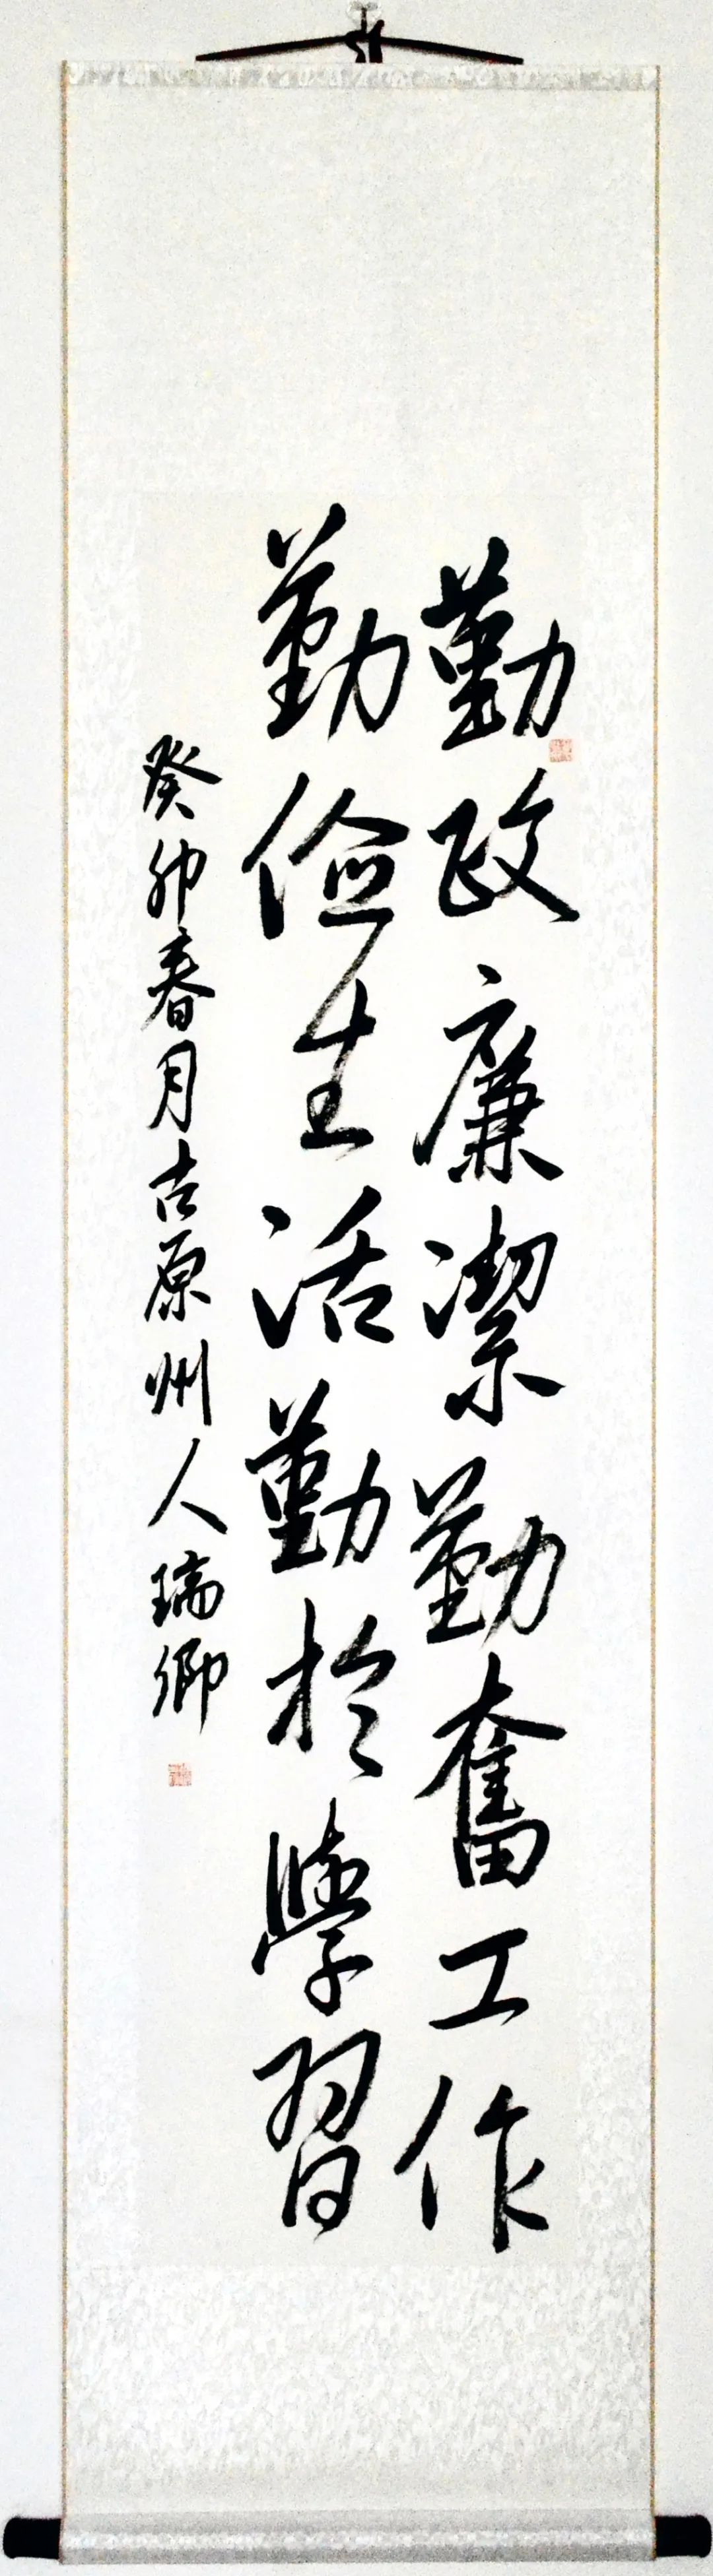 勤政廉潔勤奮工作
勤儉生活勤於學習
癸卯春月古原州人瑞卿